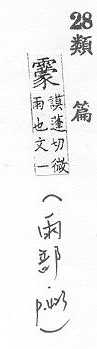 28類篇
霥
謨蓬切微
雨也文一
(雨部,